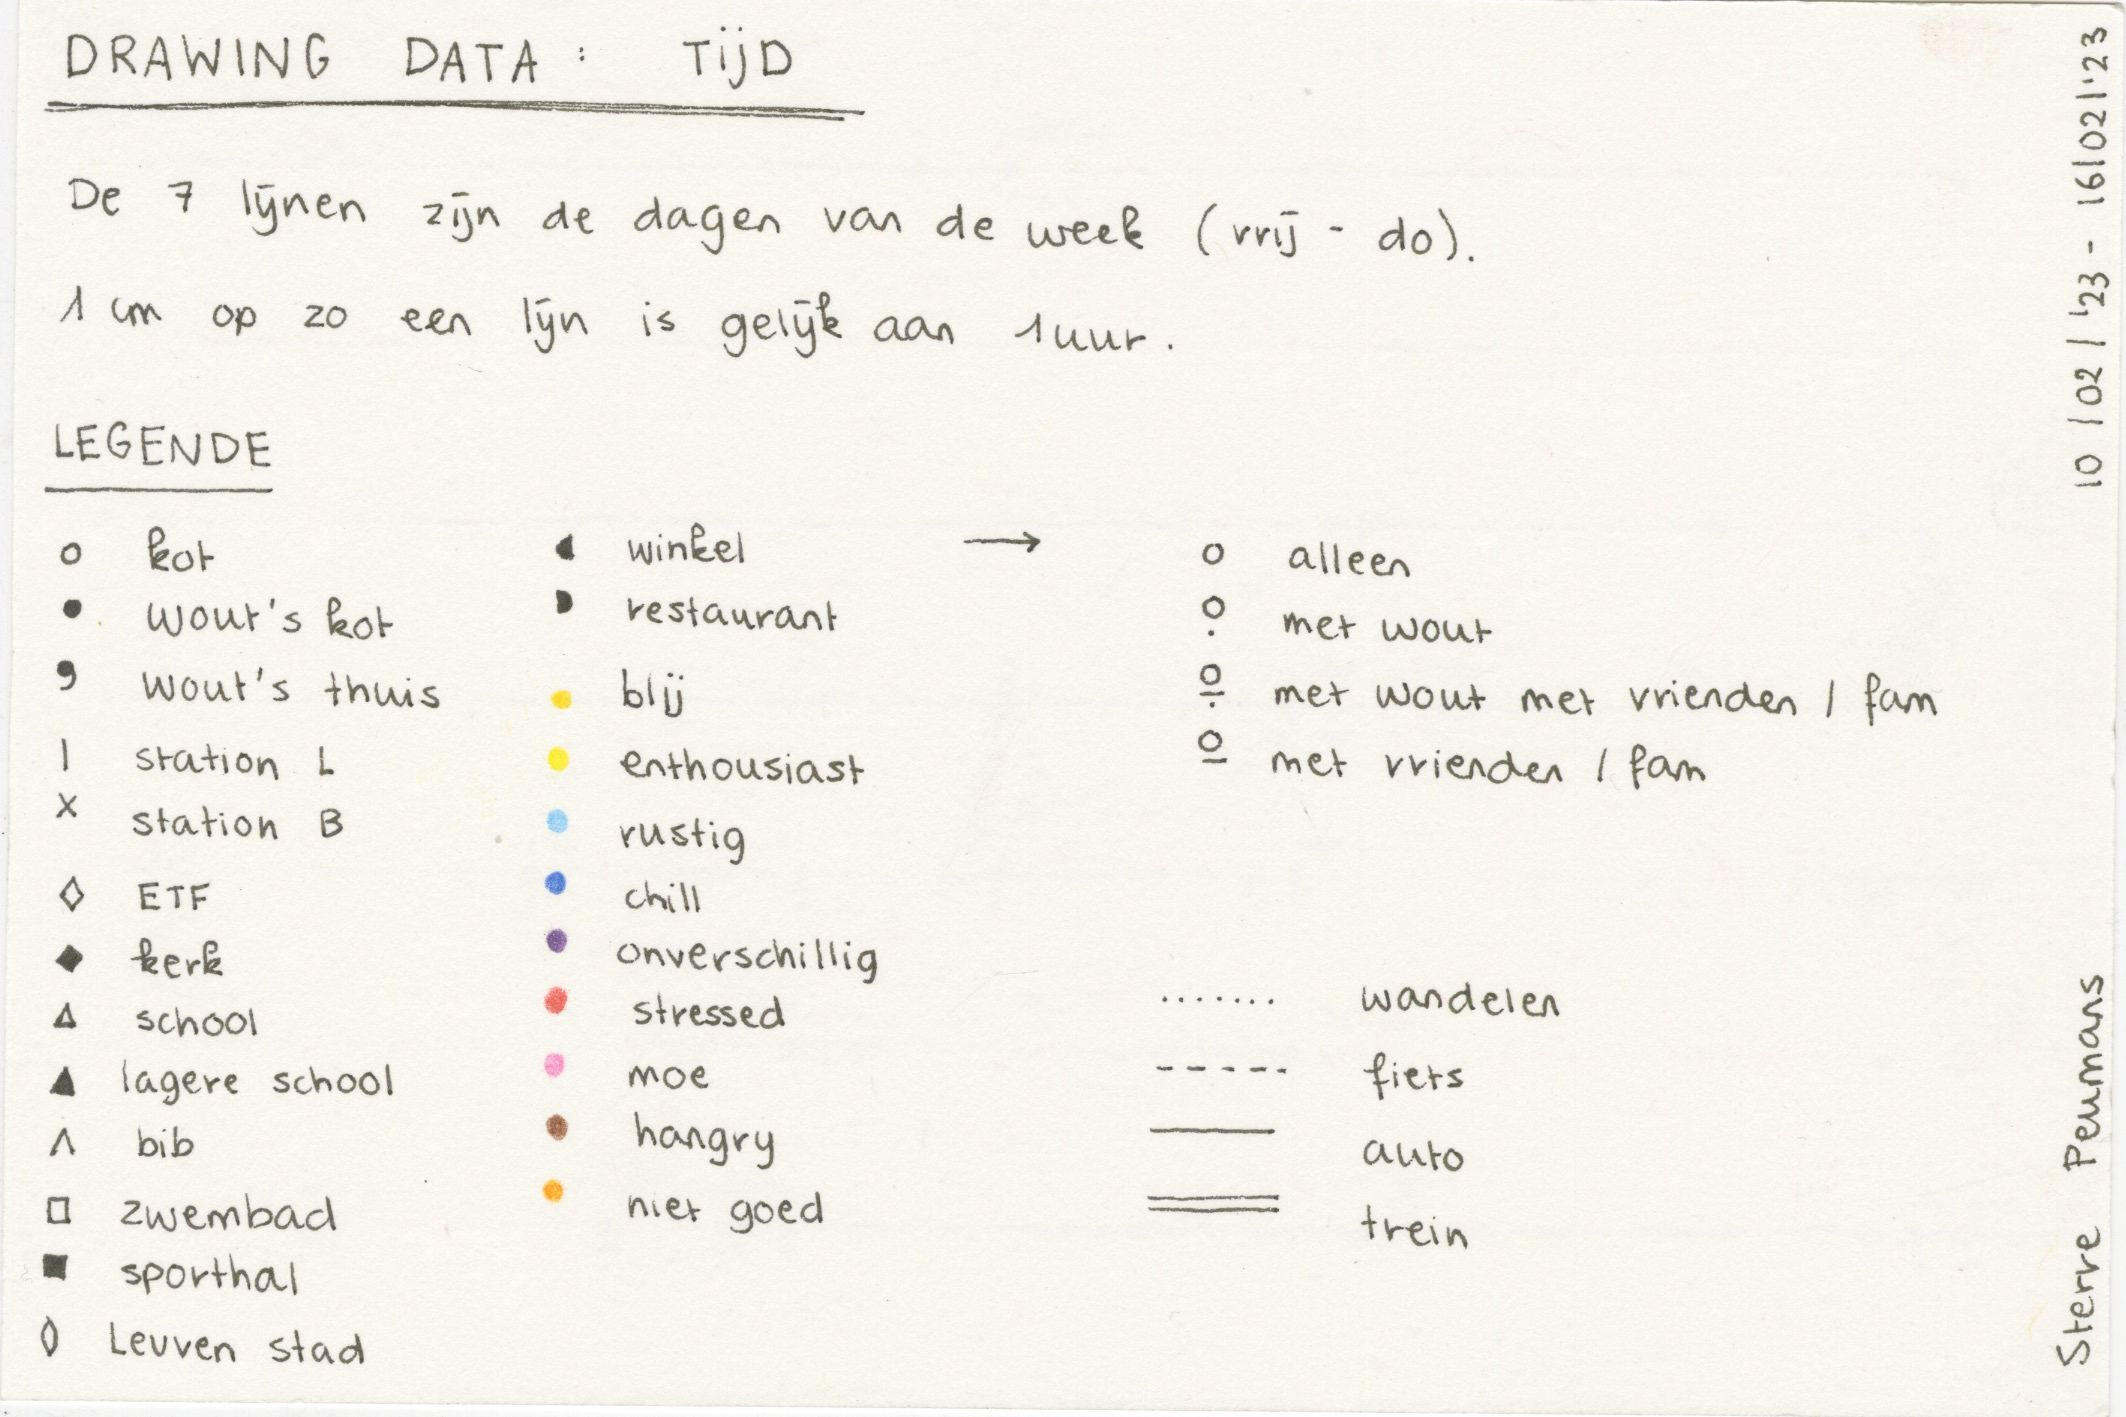 DRAWING DATA: TijD
De 7 lijnen zijn de dagen van de week (vrij - do).
1 cm op zo een lijn is gelijk aan 1 uur.
LEGENDE
kot
wout's kot
wout's thuis
station L
station B
ETF
kerk
school
lagere school
bib
zwembad
sporthal
Leuven stad
winkel
restaurant
blij
enthousiast
rustig
chill
onverschillig
stressed
moe
hangry
niet goed
alleen
met wout
met wout met vrienden / fam
met vrienden / fam
wandelen
fiets
auto
trein
10 / 02 / '23 - 16/02/'23
Sterre Peumans